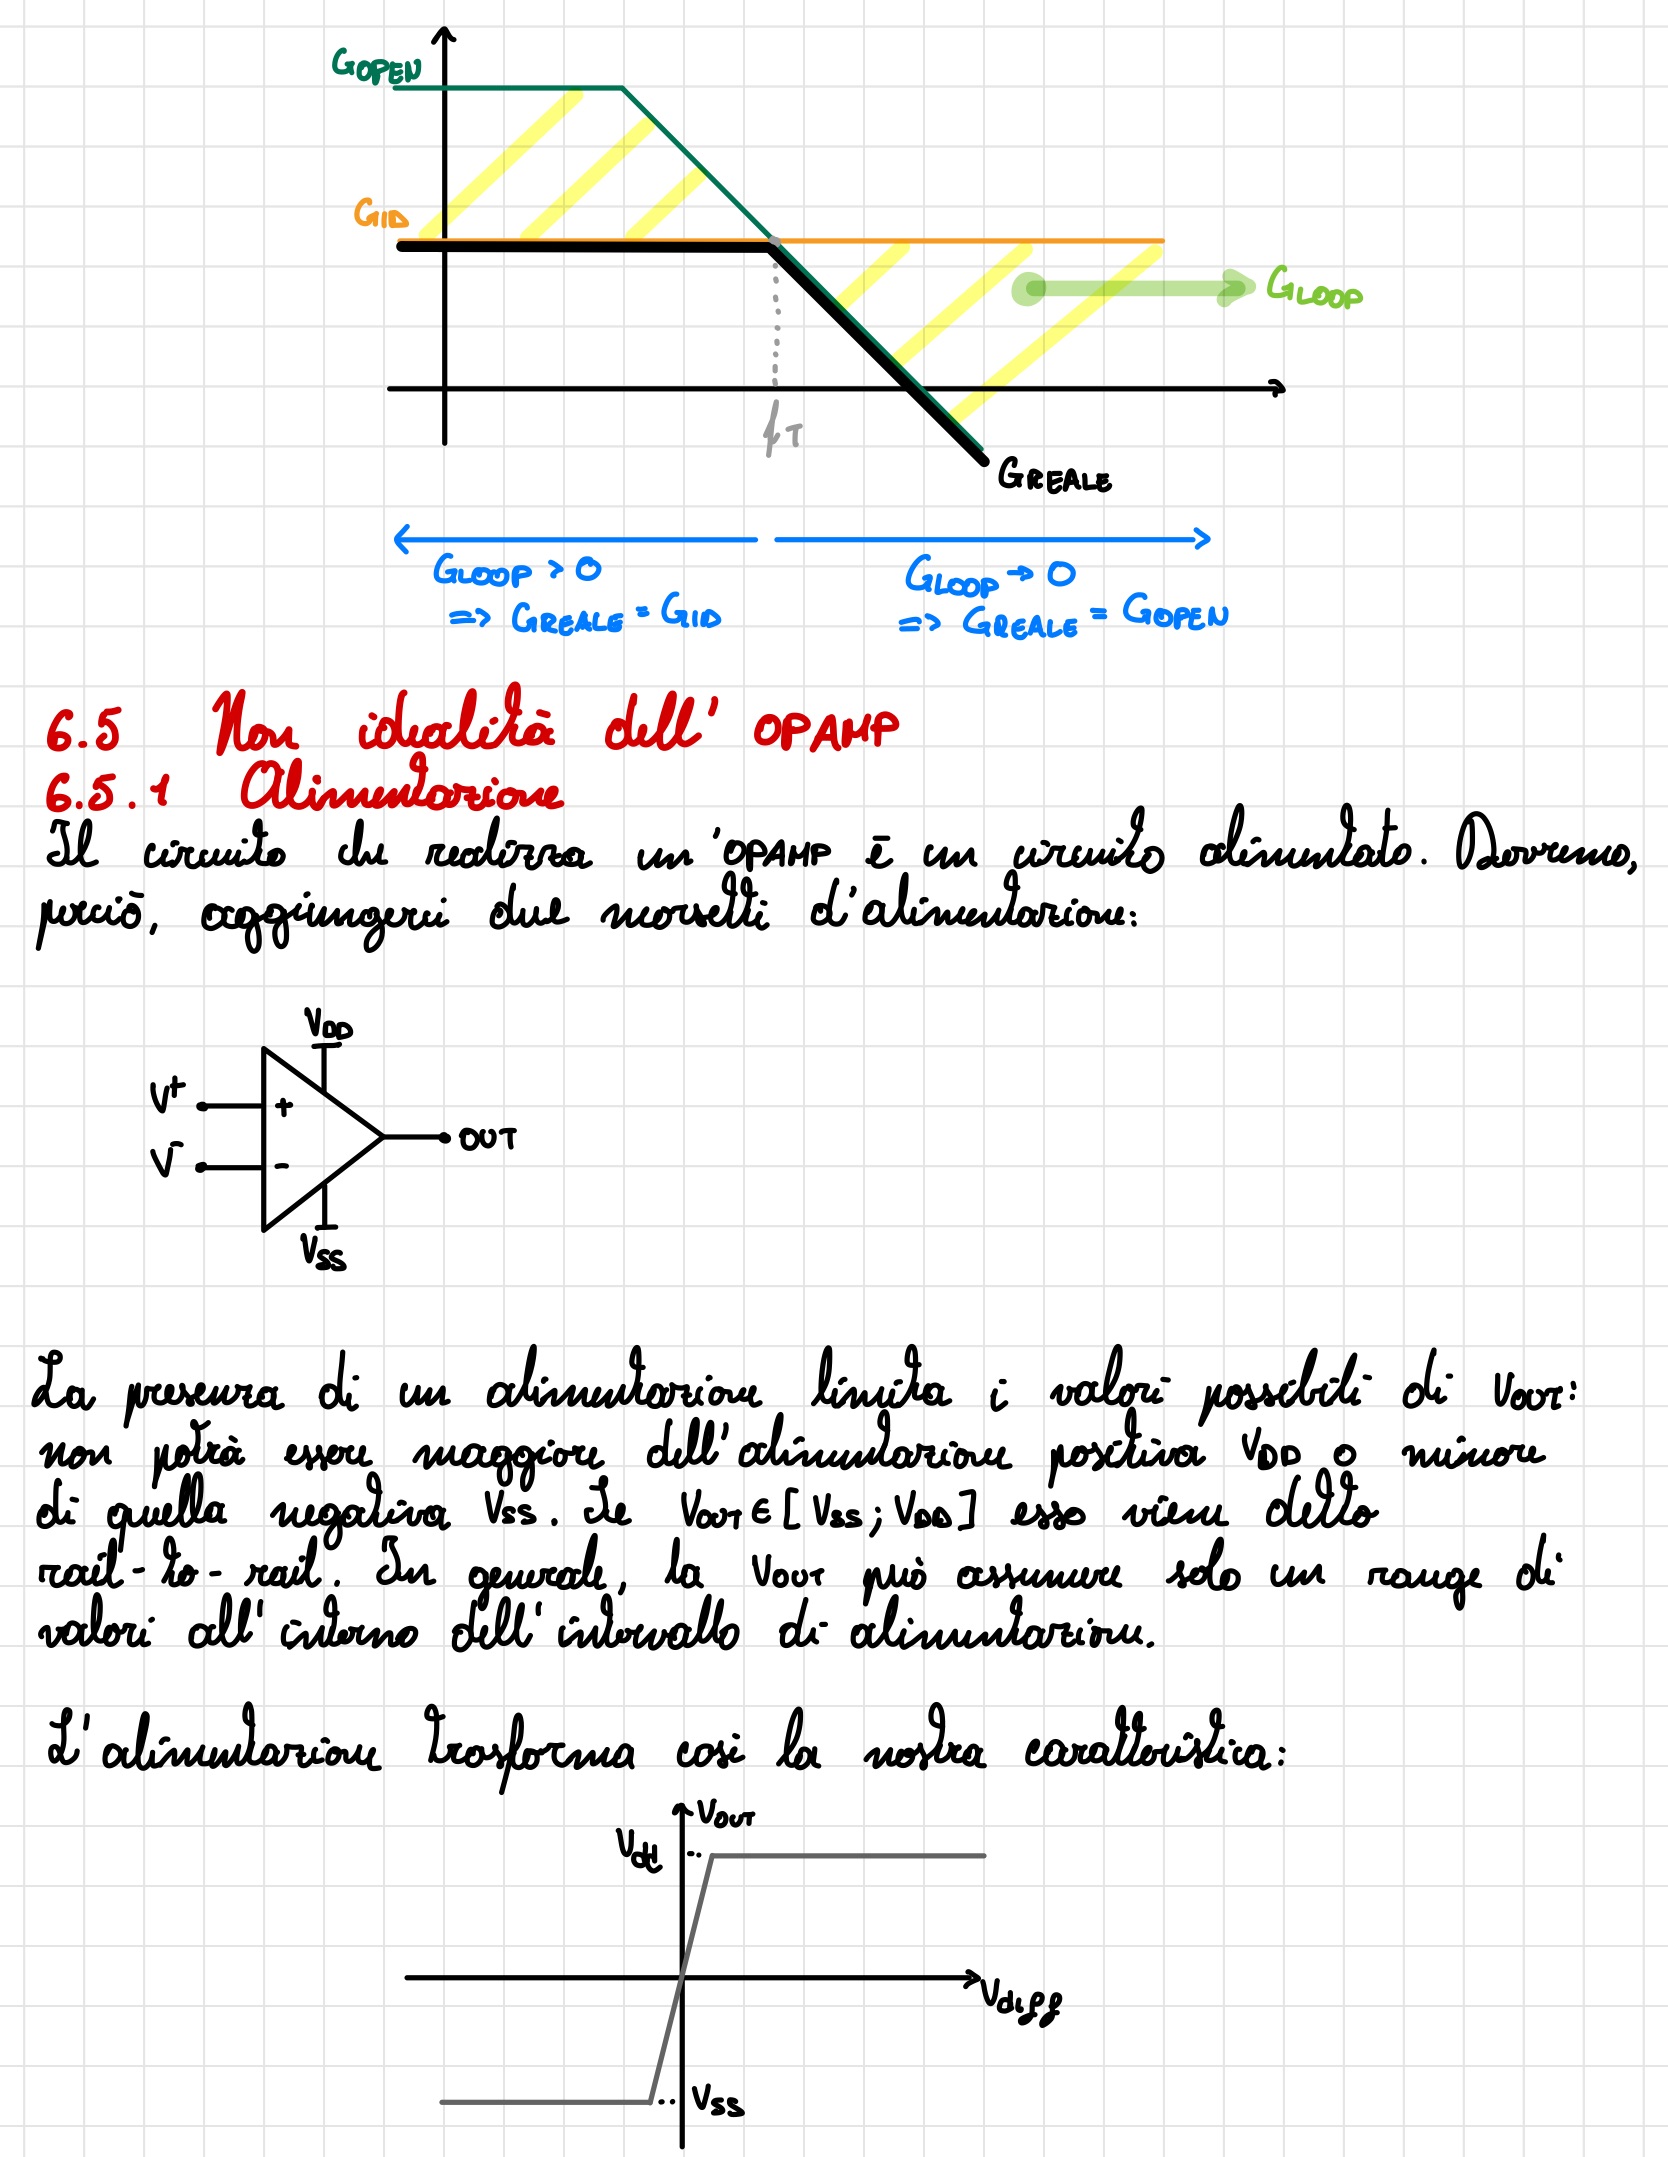 GOPEN
GID
GLOOP
fT
GREALE
GLOOP > 0
=> GREALE = GID
GLOOP → 0
=> GREALE = GOPEN
6.5 Non idealità dell' OPAMP
6.5.1 Alimentazione
Il circuito che realizza un'OPAMP è un circuito alimentato. Dovremo,
perciò, aggiungerci due morsetti d'alimentazione:
VDD
V+
+
V-
-
OUT
VSS
La presenza di un alimentazione limita i valori possibili di VOUT:
non potrà essere maggiore dell'alimentazione positiva VDD o minore
di quella negativa VSS. Se VOUT ∈ [VSS; VDD] esso viene detto
rail-to-rail. In generale, la VOUT può assumere solo un range di
valori all'interno dell'intervallo di alimentazione.
L'alimentazione trasforma così la nostra caratteristica:
VOUT
Vdd
Vdiff
VSS